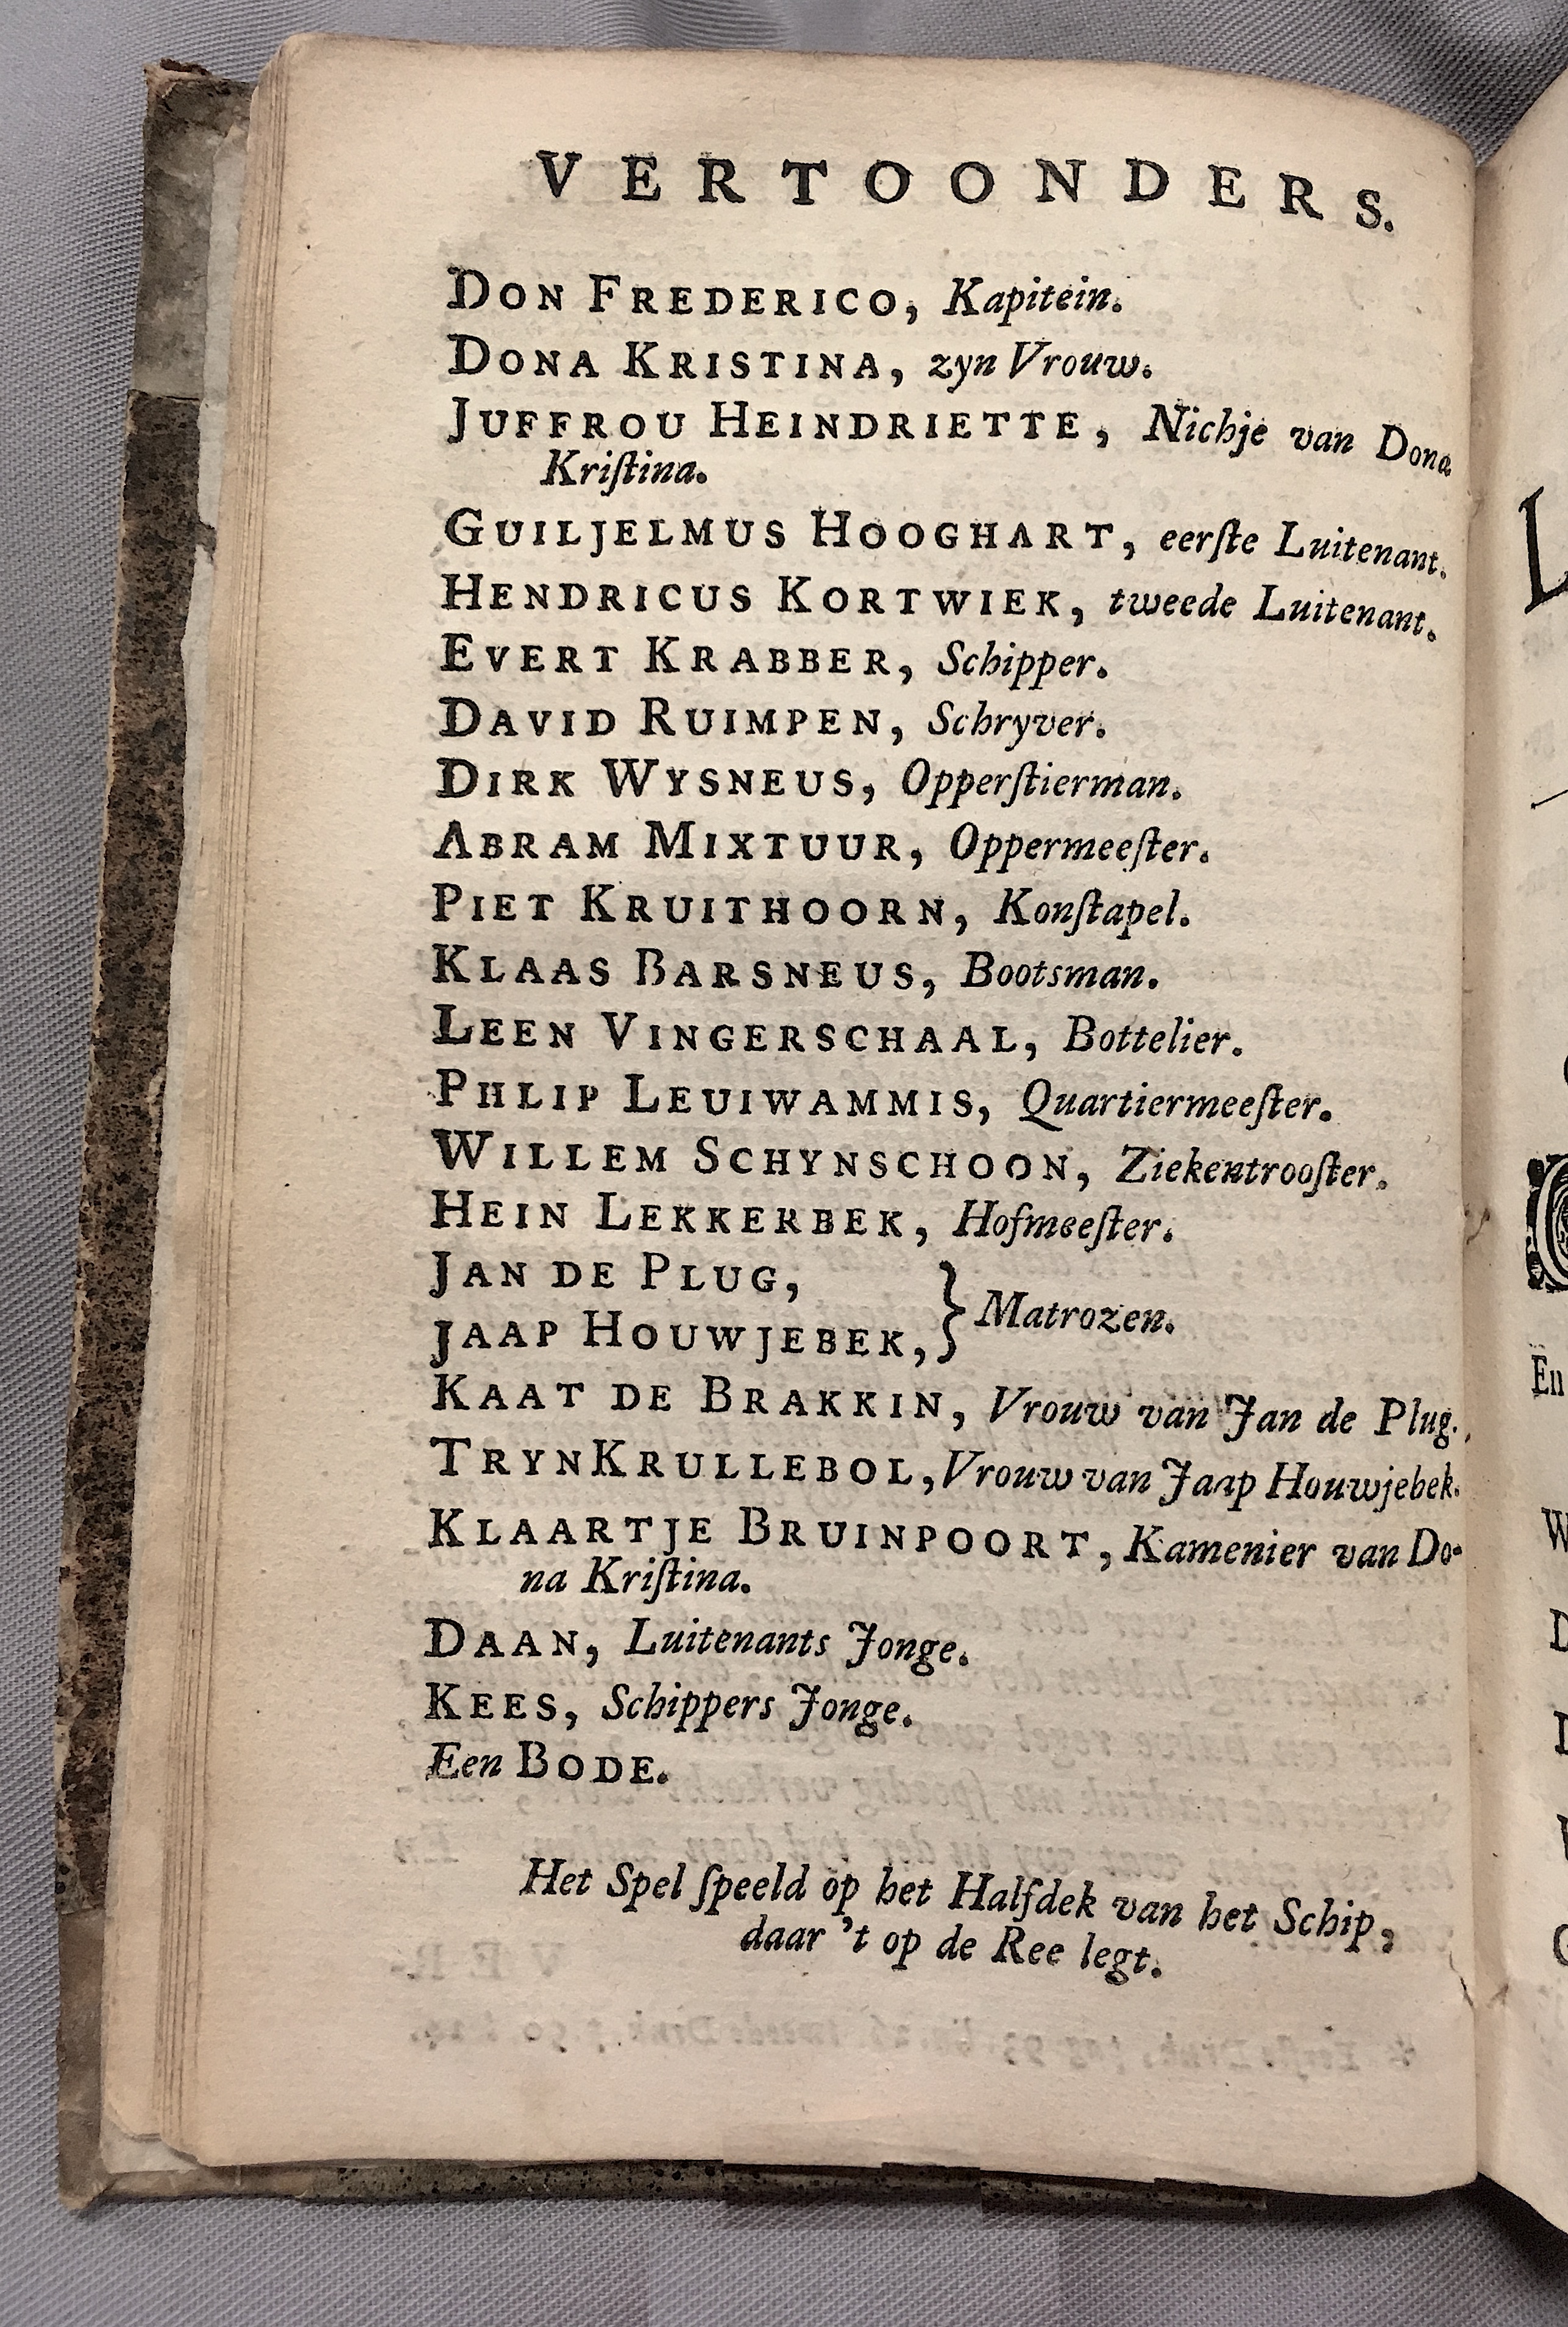 VERTOONDERS.
DON FREDERICO, Kapitein.
DONA KRISTINA, zyn Vrouw.
JUFFROU HEINDRIETTE, Nichje van Dona
Kriſtina.
GUILJELMUS HOOGHART, eerſte Luitenant.
HENDRICUS KORTWIEK, tweede Luitenant.
EVERT KRABBER, Schipper.
DAVID RUIMPEN, Schryver.
DIRK WYSNEUS, Opperſtierman.
ABRAM MIXTUUR, Oppermeeſter.
PIET KRUITHOORN, Konſtapel.
KLAAS BARSNEUS, Bootsman.
LEEN VINGERSCHAAL, Bottelier.
PHLIP LEUIWAMMIS, Quartiermeeſter.
WILLEM SCHYNSCHOON, Ziekentrooſter.
HEIN LEKKERBEK, Hofmeeſter.
JAN DE PLUG,
JAAP HOUWJEBEK, } Matrozen.
KAAT DE BRAKKIN, Vrouw van Jan de Plug.
TRYN KRULLEBOL, Vrouw van Jaap Houwjebek.
KLAARTJE BRUINPOORT, Kamenier van Do-
na Kriſtina.
DAAN, Luitenants Jonge.
KEES, Schippers Jonge.
Een BODE.
Het Spel ſpeeld op het Halfdek van het Schip,
daar 't op de Ree legt.